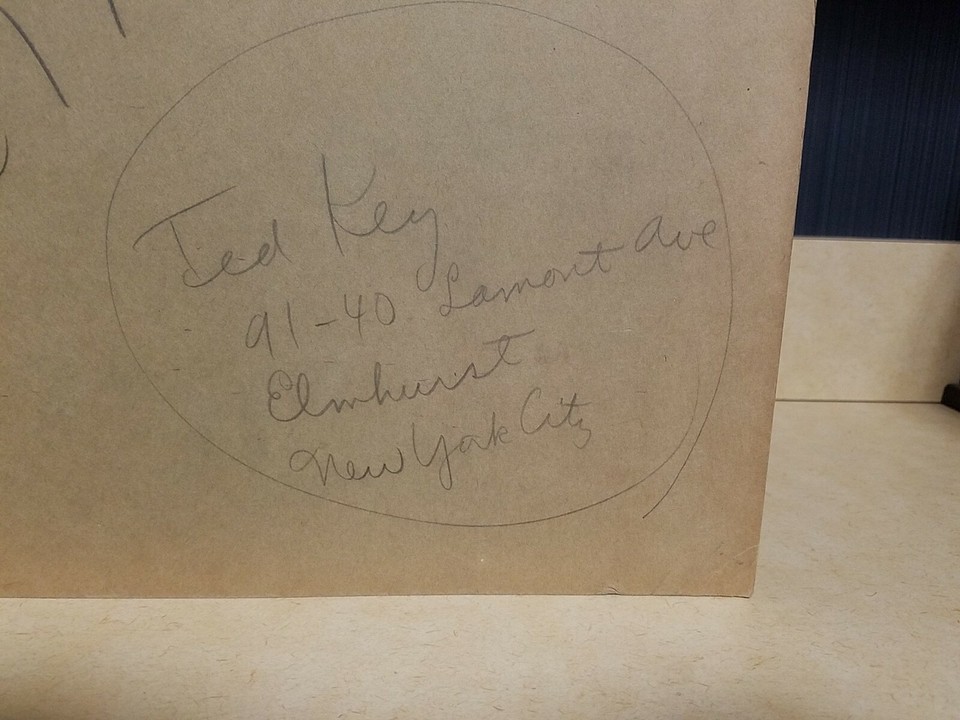 Ted Key
91-40 Lamont Ave
Elmhurst
New York City